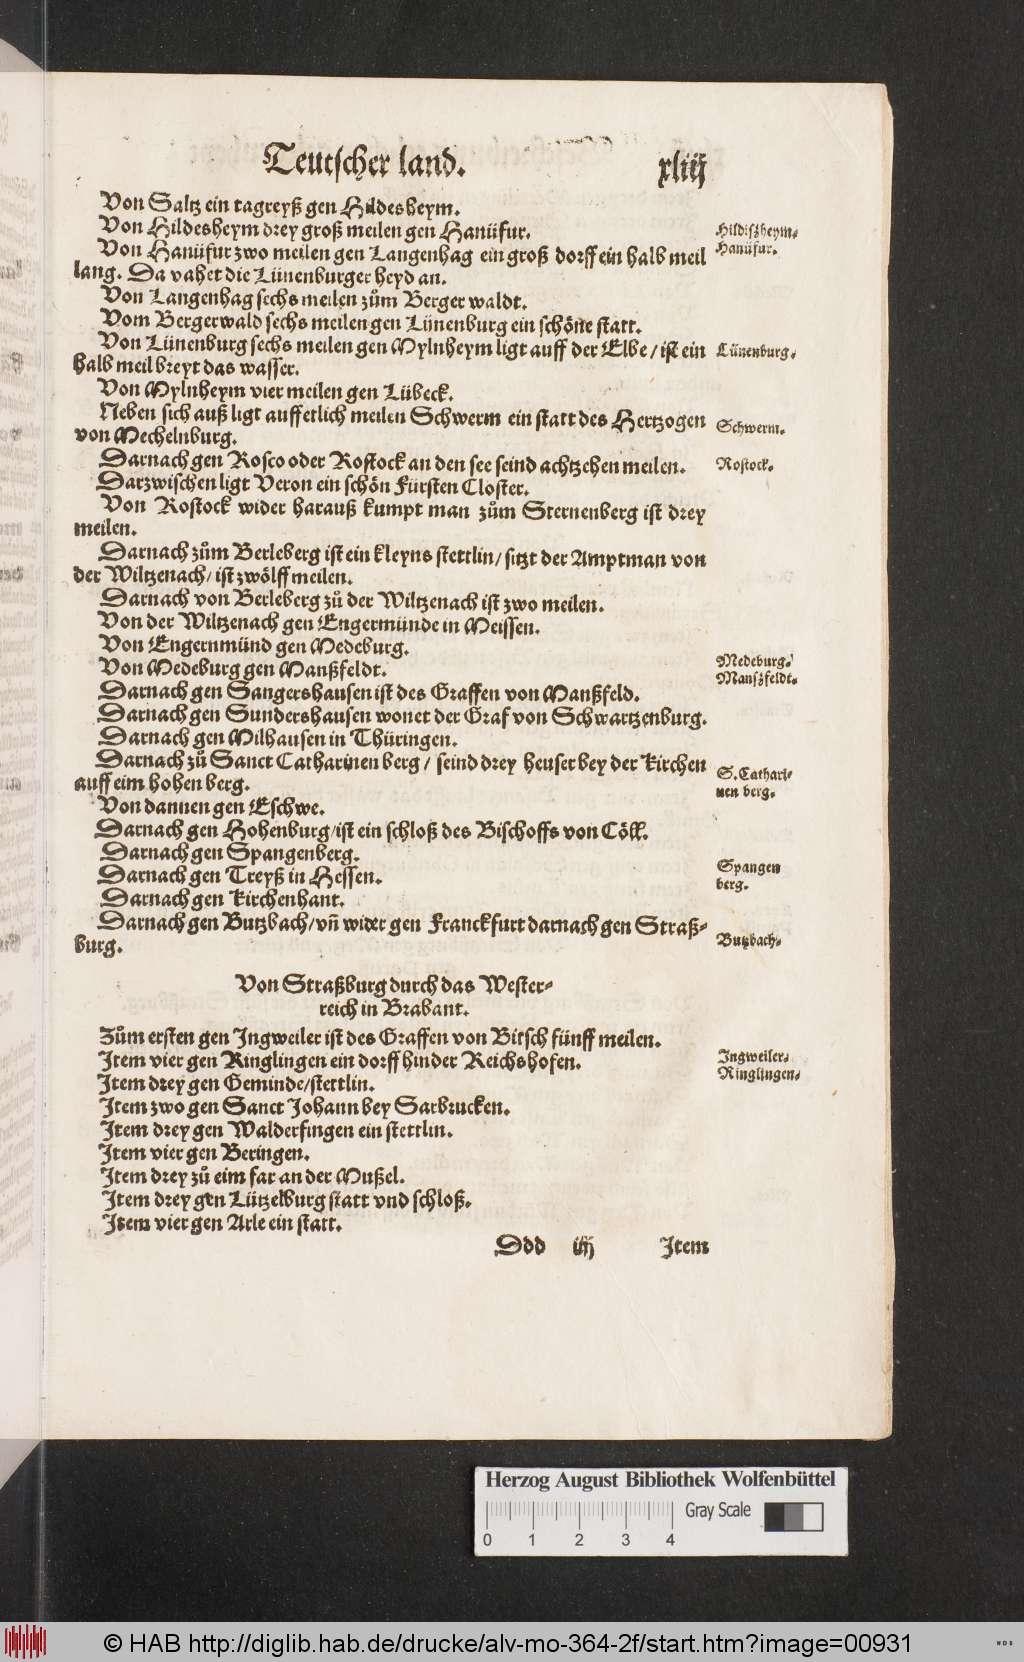 Teutscher land. xliij
Von Saltz ein tagreyß gen Hildesheym.
Von Hildesheym drey groß meilen gen Hanüfur.
Hildißheym.
Von Hanüfur zwo meilen gen Langenhag ein groß dorff ein halb meil
Hanüfur.
lang. Da vahet die Lünenburger heyd an.
Von Langenhag sechs meilen zům Berger waldt.
Vom Bergerwald sechs meilen gen Lünenburg ein schöne statt.
Von Lünenburg sechs meilen gen Mylnheym ligt auff der Elbe / ist ein
Lünenburg.
halb meil breyt das wasser.
Von Mylnheym vier meilen gen Lübeck.
Neben sich auß ligt auff etlich meilen Schwerm ein statt des Hertzogen
Schwerm.
von Mechelnburg.
Darnach gen Rosco oder Rostock an den see seind achtzehen meilen.
Rostock.
Darzwischen ligt Veron ein schön Fürsten Closter.
Von Rostock wider harauß kumpt man zům Sternenberg ist drey
meilen.
Darnach zům Berleberg ist ein kleyns stettlin / sitzt der Amptman von
der Wiltzenach / ist zwölff meilen.
Darnach von Berleberg zů der Wiltzenach ist zwo meilen.
Von der Wiltzenach gen Engermünde in Meissen.
Von Engernmünd gen Medeburg.
Medeburg.
Von Medeburg gen Manßfeldt.
Manßfeldt.
Darnach gen Sangershausen ist des Graffen von Manßfeld.
Darnach gen Sundershausen wonet der Graf von Schwartzenburg.
Darnach gen Milhausen in Thüringen.
Darnach zů Sanct Catharinen berg / seind drey heuser bey der Kirchen
S. Cathari-
auff eim hohen berg.
nen berg.
Von dannen gen Eschwe.
Darnach gen Hohenburg / ist ein schloß des Bischoffs von Cöll.
Darnach gen Spangenberg.
Spangen
Darnach gen Treyß in Hessen.
berg.
Darnach gen Kirchenhant.
Darnach gen Butzbach / vñ wider gen Franckfurt darnach gen Straß-
Butzbach.
burg.
Von Straßburg durch das Wester-
reich in Brabant.
Zům ersten gen Ingweiler ist des Graffen von Bitsch fünff meilen.
Ingweiler.
Item vier gen Ringlingen ein dorff hinder Reichshofen.
Ringlingen.
Item drey gen Geminde / stettlin.
Item zwo gen Sanct Johann bey Sarbrucken.
Item drey gen Walderfingen ein stettlin.
Item vier gen Beringen.
Item drey zů eim far an der Mußel.
Item drey gen Lützelburg statt vnd schloß.
Item vier gen Arle ein statt.
Ddd iiij Item
Herzog August Bibliothek Wolfenbüttel
Gray Scale
0 1 2 3 4
© HAB http://diglib.hab.de/drucke/alv-mo-364-2f/start.htm?image=00931